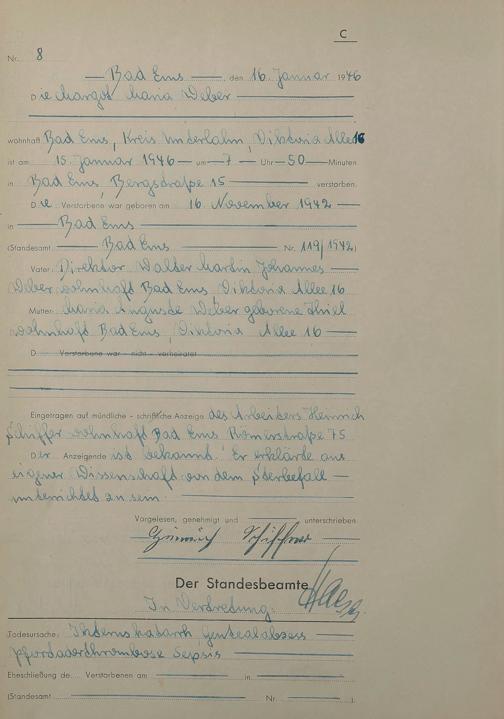 C
Nr. 8
Bad Ems, den 16. Januar 1946
Die Margot Maria Weber
wohnhaft Bad Ems, Kreis Unterlahn, Viktoria Allee 16
ist am 15. Januar 1946 um 7 Uhr 50 Minuten
in Bad Ems, Bergstraße 15 verstorben.
Die Verstorbene war geboren am 16 November 1942
in Bad Ems
(Standesamt Bad Ems Nr. 119/1942)
Vater: Direktor Walter Martin Johannes
Weber wohnhaft Bad Ems Viktoria Allee 16
Mutter: Maria Auguste Weber geborene Thiel
wohnhaft Bad Ems, Viktoria Allee 16
D Verstorbene war – nicht – verheiratet
Eingetragen auf mündliche – schriftliche Anzeige des Arbeiters Heinrich
Schiffer wohnhaft Bad Ems Römerstraße 75
Der Anzeigende ist bekannt. Er erklärte aus
eigener Wissenschaft von dem Sterbefall
unterrichtet zu sein
Vorgelesen, genehmigt und unterschrieben
Heinrich Schiffer
Der Standesbeamte
In Vertretung:
Todesursache:
Sepsis
Eheschließung de Verstorbenen am in
(Standesamt Nr. ).